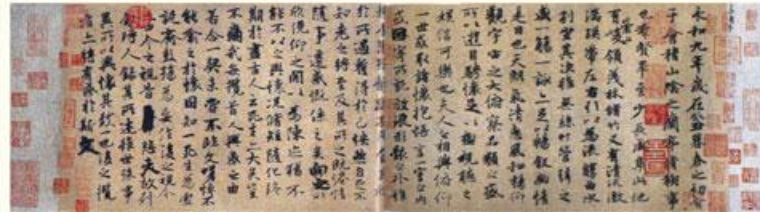 永和九年歲在癸丑暮春之初會
于會稽山陰之蘭亭脩稧事
也羣賢畢至少長咸集此地
有崇山峻領茂林脩竹又有清流激
湍暎帶左右引以為流觴曲水
列坐其次雖無絲竹管弦之
盛一觴一詠亦足以暢敘幽情
是日也天朗氣清惠風和暢仰
觀宇宙之大俯察品類之盛
所以遊目騁懷足以極視聽之
娛信可樂也夫人之相與俯仰
一世或取諸懷抱悟言一室之內
或因寄所託放浪形骸之外雖
於所遇蹔得於己怏然自足不
知老之將至及其所之既惓情
隨事遷感慨係之矣向之所
欣俛仰之間以為陳迹猶不
能不以之興懷況脩短隨化終
期於盡古人云死生亦大矣豈
不痛哉每攬昔人興感之由
若合一契未嘗不臨文嗟悼不
能喻之於懷固知一死生為虛
誕齊彭殤為妄作後之視今
亦由今之視昔悲夫故列
敘時人錄其所述雖世殊事
異所以興懷其致一也後之攬
者亦將有感於斯文